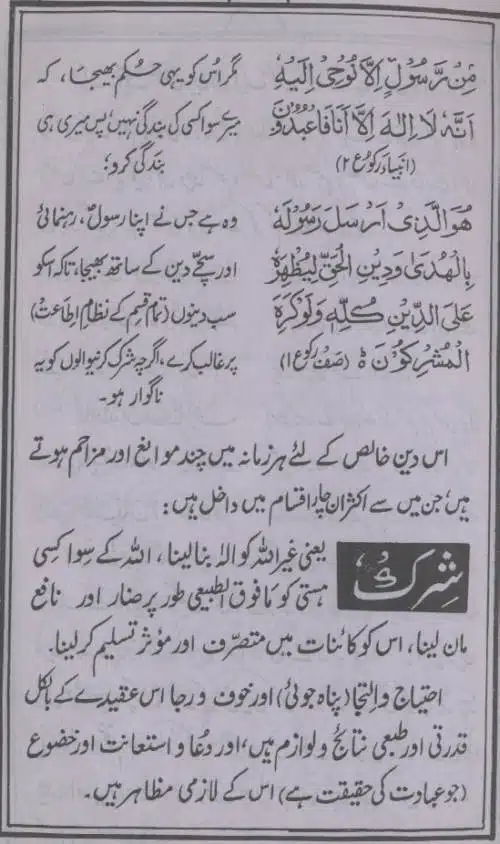 مِنْ رَّسُولٍ اِلَّا نُوْحِیْ اِلَیْهِ
اَنَّهٗ لَا اِلٰهَ اِلَّا اَنَا فَاعْبُدُوْنِ
(انبیاء رکوع ۲)
مگر اُس کو یہی حکم بھیجا، کہ
میرے سوا کسی کی بندگی نہیں، پس میری ہی
بندگی کرو؛
هُوَ الَّذِیْ اَرْسَلَ رَسُوْلَهٗ
بِالْهُدٰی وَدِیْنِ الْحَقِّ لِیُظْهِرَهٗ
عَلَی الدِّیْنِ کُلِّهٖ وَلَوْ کَرِهَ
الْمُشْرِکُوْنَ ۵ (صف رکوع ۱)
وہ ہے جس نے اپنا رسولؐ، رہنمائی
اور سچّے دین کے ساتھ بھیجا، تاکہ اسکو
سب دینوں (تمام قسم کے نظامِ اطاعت)
پر غالب کرے، اگرچہ شرک کرنیوالوں کو یہ
ناگوار ہو۔
اس دینِ خالص کے لئے ہر زمانہ میں چند موانع اور مزاحم ہوتے
ہیں، جن میں سے اکثر ان چار اقسام میں داخل ہیں:
شِرک
یعنی غیر اللہ کو الٰہ بنا لینا، اللہ کے سوا کسی
ہستی کو مافوق الطبیعی طور پر ضار اور نافع
مان لینا، اس کو کائنات میں متصرّف اور مؤثر تسلیم کر لینا۔
احتیاج و التجا (پناہ جوئی) اور خوف و رجا اس عقیدے کے بالکل
قدرتی اور طبعی نتائج و لوازم ہیں، اور دُعا و استعانت اور خضوع
(جو عبادت کی حقیقت ہے) اس کے لازمی مظاہر ہیں۔